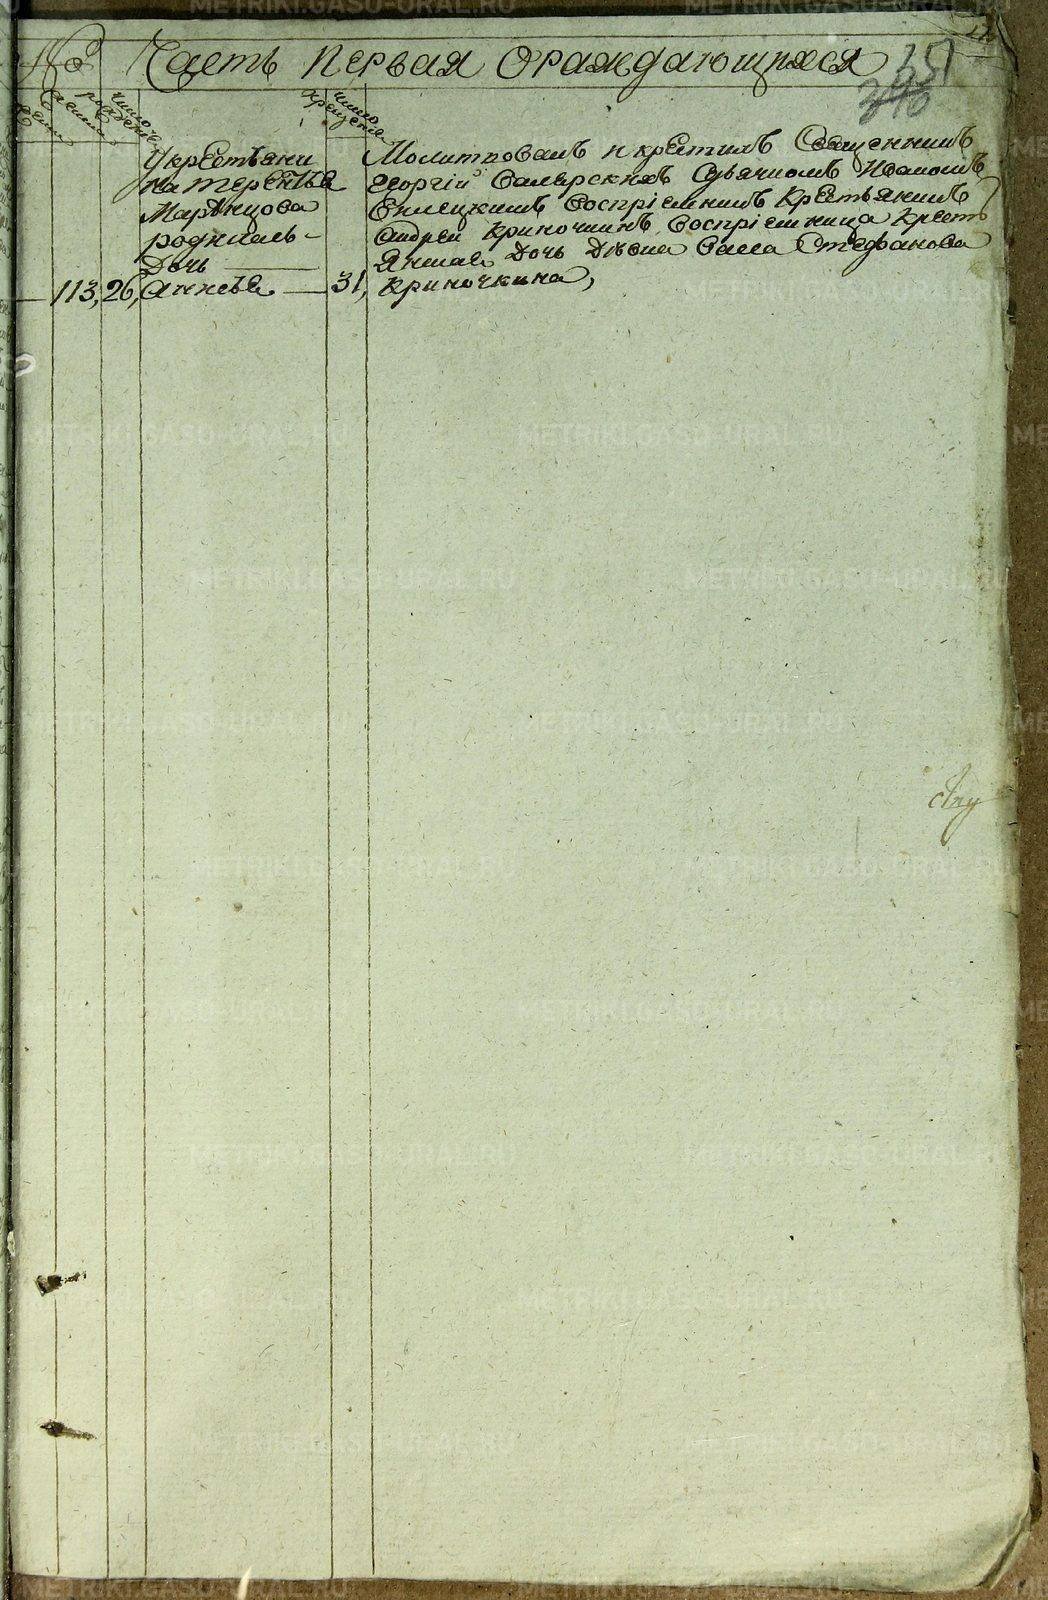 Часть первая о раждающихся
151
396
число рождения
число крещения
У крестьяни
на Терентья
Маренцова
родилась
дочь
113, 26, Анна 31,
Молитвовалъ и крестилъ Священникъ
Георгій съ дьячкомъ Иваномъ
воспріемникъ крестьянинъ
Андрей Криночкинъ воспріемница кресть
янская дочь девка Стефанова
Криночкина,
METRIKI.GASO-URAL.RU